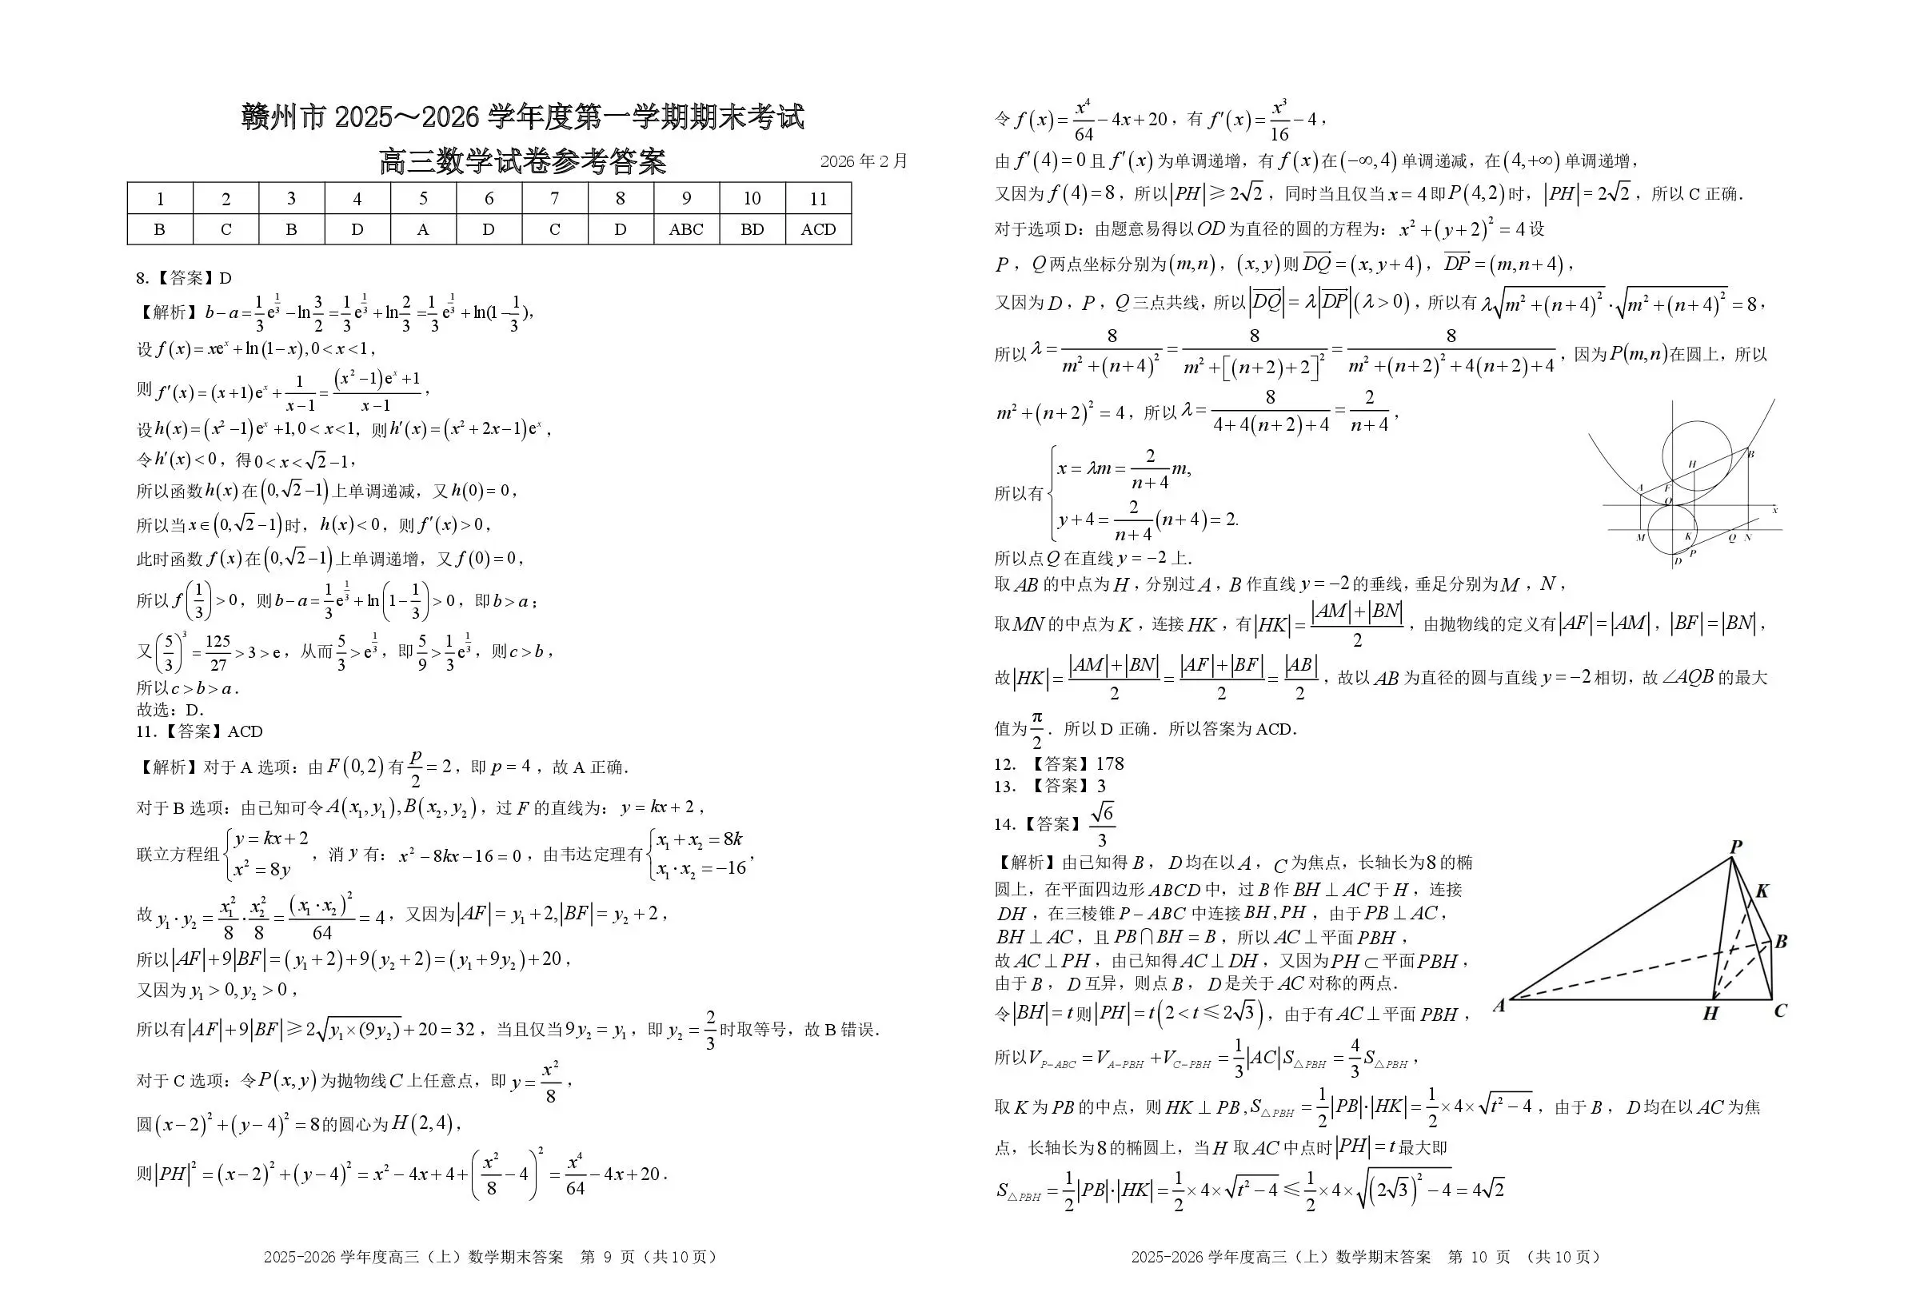 赣州市 2025～2026 学年度第一学期期末考试
高三数学试卷参考答案 2026 年 2 月
1 2 3 4 5 6 7 8 9 10 11
B C B D A D C D ABC BD ACD
8.【答案】D
【解析】b−a=1/3 e^(1/3)−ln 3/2=1/3 e^(1/3)+ln 2/3=1/3 e^(1/3)+ln(1−1/3),
设 f(x)=xe^x+ln(1−x),0<x<1，
则 f′(x)=(x+1)e^x+1/(x−1)=((x²−1)e^x+1)/(x−1)，
设 h(x)=(x²−1)e^x+1,0<x<1，则 h′(x)=(x²+2x−1)e^x，
令 h′(x)<0，得 0<x<√2−1，
所以函数 h(x) 在 (0,√2−1) 上单调递减，又 h(0)=0，
所以当 x∈(0,√2−1) 时，h(x)<0，则 f′(x)>0，
此时函数 f(x) 在 (0,√2−1) 上单调递增，又 f(0)=0，
所以 f(1/3)>0，则 b−a=1/3 e^(1/3)+ln(1−1/3)>0，即 b>a；
又 (5/3)³=125/27>3>e，从而 5/3>e^(1/3)，即 5/9>1/3 e^(1/3)，则 c>b，
所以 c>b>a．
故选：D．
11.【答案】ACD
【解析】对于 A 选项：由 F(0,2) 有 p/2=2，即 p=4，故 A 正确．
对于 B 选项：由已知可令 A(x₁,y₁),B(x₂,y₂)，过 F 的直线为：y=kx+2，
联立方程组 {y=kx+2 x²=8y，消 y 有：x²−8kx−16=0，由韦达定理有 {x₁+x₂=8k x₁·x₂=−16，
故 y₁·y₂=x₁²/8·x₂²/8=(x₁·x₂)²/64=4，又因为 |AF|=y₁+2,|BF|=y₂+2，
所以 |AF|+9|BF|=(y₁+2)+9(y₂+2)=(y₁+9y₂)+20，
又因为 y₁>0,y₂>0，
所以有 |AF|+9|BF|≥2√(y₁×(9y₂))+20=32，当且仅当 9y₂=y₁，即 y₂=2/3 时取等号，故 B 错误．
对于 C 选项：令 P(x,y) 为抛物线 C 上任意点，即 y=x²/8，
圆 (x−2)²+(y−4)²=8 的圆心为 H(2,4)，
则 |PH|²=(x−2)²+(y−4)²=x²−4x+4+(x²/8−4)²=x⁴/64−4x+20．
2025-2026 学年度高三（上）数学期末答案 第 9 页（共 10 页）
令 f(x)=x⁴/64−4x+20，有 f′(x)=x³/16−4，
由 f′(4)=0 且 f′(x) 为单调递增，有 f(x) 在 (−∞,4) 单调递减，在 (4,+∞) 单调递增，
又因为 f(4)=8，所以 |PH|≥2√2，同时当且仅当 x=4 即 P(4,2) 时，|PH|=2√2，所以 C 正确．
对于选项 D：由题意易得以 OD 为直径的圆的方程为：x²+(y+2)²=4 设
P，Q 两点坐标分别为 (m,n)，(x,y) 则 DQ→=(x,y+4)，DP→=(m,n+4)，
又因为 D，P，Q 三点共线，所以 |DQ→|=λ|DP→|(λ>0)，所以有 λ√(m²+(n+4)²)·√(m²+(n+4)²)=8，
所以 λ=8/(m²+(n+4)²)=8/(m²+[(n+2)+2]²)=8/(m²+(n+2)²+4(n+2)+4)，因为 P(m,n) 在圆上，所以
m²+(n+2)²=4，所以 λ=8/(4+4(n+2)+4)=2/(n+4)，
所以有 {x=λm=2/(n+4) m, y+4=2/(n+4)(n+4)=2.
A H B F O x M K Q N D P
所以点 Q 在直线 y=−2 上．
取 AB 的中点为 H，分别过 A，B 作直线 y=−2 的垂线，垂足分别为 M，N，
取 MN 的中点为 K，连接 HK，有 |HK|=(|AM|+|BN|)/2，由抛物线的定义有 |AF|=|AM|，|BF|=|BN|，
故 |HK|=(|AM|+|BN|)/2=(|AF|+|BF|)/2=|AB|/2，故以 AB 为直径的圆与直线 y=−2 相切，故 ∠AQB 的最大
值为 π/2．所以 D 正确．所以答案为 ACD．
12．【答案】178
13．【答案】3
14.【答案】√6/3
【解析】由已知得 B，D 均在以 A，C 为焦点，长轴长为 8 的椭
圆上，在平面四边形 ABCD 中，过 B 作 BH⊥AC 于 H，连接
DH，在三棱锥 P−ABC 中连接 BH,PH，由于 PB⊥AC，
BH⊥AC，且 PB∩BH=B，所以 AC⊥平面 PBH，
故 AC⊥PH，由已知得 AC⊥DH，又因为 PH⊂平面 PBH，
由于 B，D 互异，则点 B，D 是关于 AC 对称的两点．
令 |BH|=t 则 |PH|=t(2<t≤2√3)，由于有 AC⊥平面 PBH，
P K B A H C
所以 V_(P−ABC)=V_(A−PBH)+V_(C−PBH)=1/3|AC|S_△PBH=4/3 S_△PBH，
取 K 为 PB 的中点，则 HK⊥PB,S_△PBH=1/2|PB|·|HK|=1/2×4×√(t²−4)，由于 B，D 均在以 AC 为焦
点，长轴长为 8 的椭圆上，当 H 取 AC 中点时 |PH|=t 最大即
S_△PBH=1/2|PB|·|HK|=1/2×4×√(t²−4)≤1/2×4×√((2√3)²−4)=4√2
2025-2026 学年度高三（上）数学期末答案 第 10 页 （共 10 页）